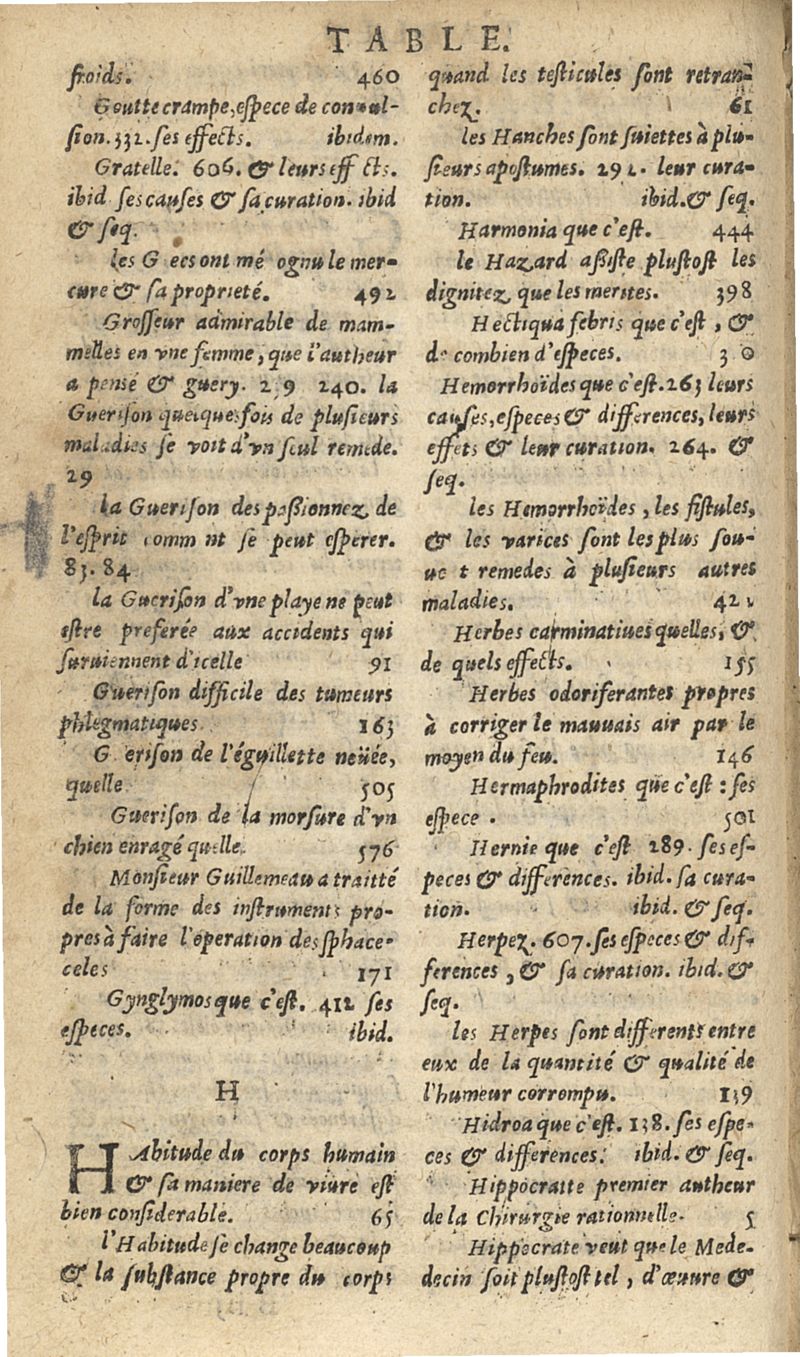 TABLE.
froids. 460
Goutte crampe, espece de conuul-
sion. 332. ses effects. ibidem.
Gratelle. 606. & leurs eff cts.
ibid ses causes & sa curation. ibid
& seq.
les G ecs ont mé ognu le mer-
cure & sa proprieté. 492
Grosseur admirable de mam-
melles en vne femme, que l'autheur
a pensé & guery. 2 9 240. la
Guerison quelquesfois de plusieurs
maladies se voit d'vn seul remede.
29
la Guerison des passionnez de
l'esprit comm nt se peut esperer.
83. 84
la Guerison d'vne playe ne peut
estre preferée aux accidents qui
suruiennent d'icelle 91
Guerison difficile des tumeurs
phlegmatiques 163
G erison de l'éguillette neüée,
quelle 505
Guerison de la morsure d'vn
chien enragé quelle. 576
Monsieur Guillemeau a traitté
de la forme des instruments pro-
pres à faire l'operation des sphace-
celes 171
Gynglymos que c'est. 412 ses
especes. ibid.
H
HAbitude du corps humain
& sa maniere de viure est
bien considerable. 65
l'Habitude se change beaucoup
& la substance propre du corps
quand les testicules sont retran-
chez. 61
les Hanches sont suiettes à plu-
sieurs apostumes. 292. leur cura-
tion. ibid. & seq.
Harmonia que c'est. 444
le Hazard assiste plustost les
dignitez que les merites. 398
Hectiqua febris que c'est, &
de combien d'especes. 3 0
Hemorrhoïdes que c'est. 263 leurs
causes, especes & differences, leurs
effets & leur curation. 264. &
seq.
les Hemorrhoïdes, les fistules,
& les varices sont les plus sou-
ue t remedes à plusieurs autres
maladies. 42
Herbes carminatiues quelles, &
de quels effects. 155
Herbes odoriferantes propres
à corriger le mauuais air par le
moyen du feu. 146
Hermaphrodites que c'est : ses
espece . 501
Hernie que c'est 289. ses es-
peces & differences. ibid. sa cura-
tion. ibid. & seq.
Herpez. 607. ses especes & dif-
ferences, & sa curation. ibid. &
seq.
les Herpes sont differents entre
eux de la quantité & qualité de
l'humeur corrompu. 139
Hidroa que c'est. 138. ses espe-
ces & differences. ibid. & seq.
Hippocratte premier autheur
de la Chirurgie rationnelle. 5
Hippocrate veut que le Mede-
decin soit plustost tel, d'œuure &